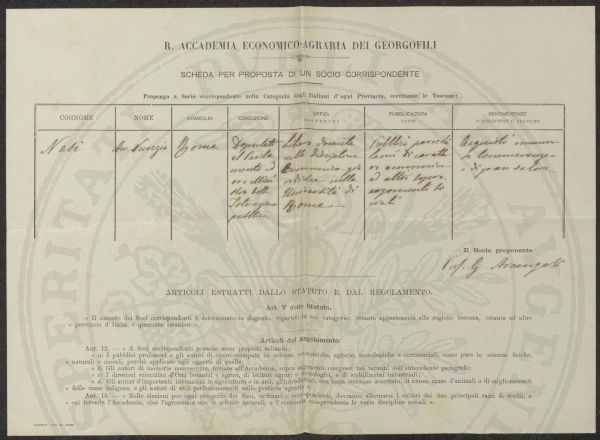 R. ACCADEMIA ECONOMICO-AGRARIA DEI GEORGOFILI
SCHEDA PER PROPOSTA DI UN SOCIO CORRISPONDENTE
Propongo a Socio corrispondente nella Categoria degli Italiani d'ogni Provincia, eccettuate le Toscane:
COGNOME NOME DOMICILIO CONDIZIONE UFFIZI PUBBLICAZIONI BENEMERENZE
Nasi Nunzio Roma
Deputato al Parlamento ed ex Ministro della Istruzione pubblica
Libero docente nelle discipline nella Università di Roma
Pubblicò di economico ed altri sopra argomenti sociali
Acquistò benemerenze
Il Socio proponente
Prof. G. Arcangeli
ARTICOLI ESTRATTI DALLO STATUTO E DAL REGOLAMENTO.
Art. V dello Statuto.
« Il numero dei Soci corrispondenti è determinato in dugento, ripartiti in tre categorie: ottanta appartenenti alle regione toscana, ottanta ad altre
« provincie d'Italia, e quaranta stranieri ».
Articoli del Regolamento.
Art. 12. — « A Soci corrispondenti possono esser proposti soltanto:
« a) I pubblici professori e gli autori di opere stampate in scienze economiche, agrarie, tecnologiche e commerciali, come pure in scienze fisiche,
« naturali e morali, purchè applicate agli oggetti di quelle.
« b) Gli autori di memorie manoscritte, inviate all'Accademia, sopra argomenti compresi nei termini dell'antecedente paragrafo;
« c) I direttori scientifici d'Orti botanici e agrari, di istituti agrari e tecnologici, e di stabilimenti industriali;
« d) Gli autori d'importanti invenzioni in agricoltura e in arti, gl'introduttori, con buon successo accertato, di nuove razze d'animali o di miglioramenti
« delle razze indigene, e gli autori di utili perfezionamenti nelle pratiche agrarie ».
Art. 15. — « Nelle elezioni per ogni categoria dei Soci, ordinari e corrispondenti, dovranno alternarsi i cultori dei due principali rami di studii, a
« cui intende l'Accademia, cioè l'agronomia con le scienze naturali, e l'economia comprendente le varie discipline sociali ».